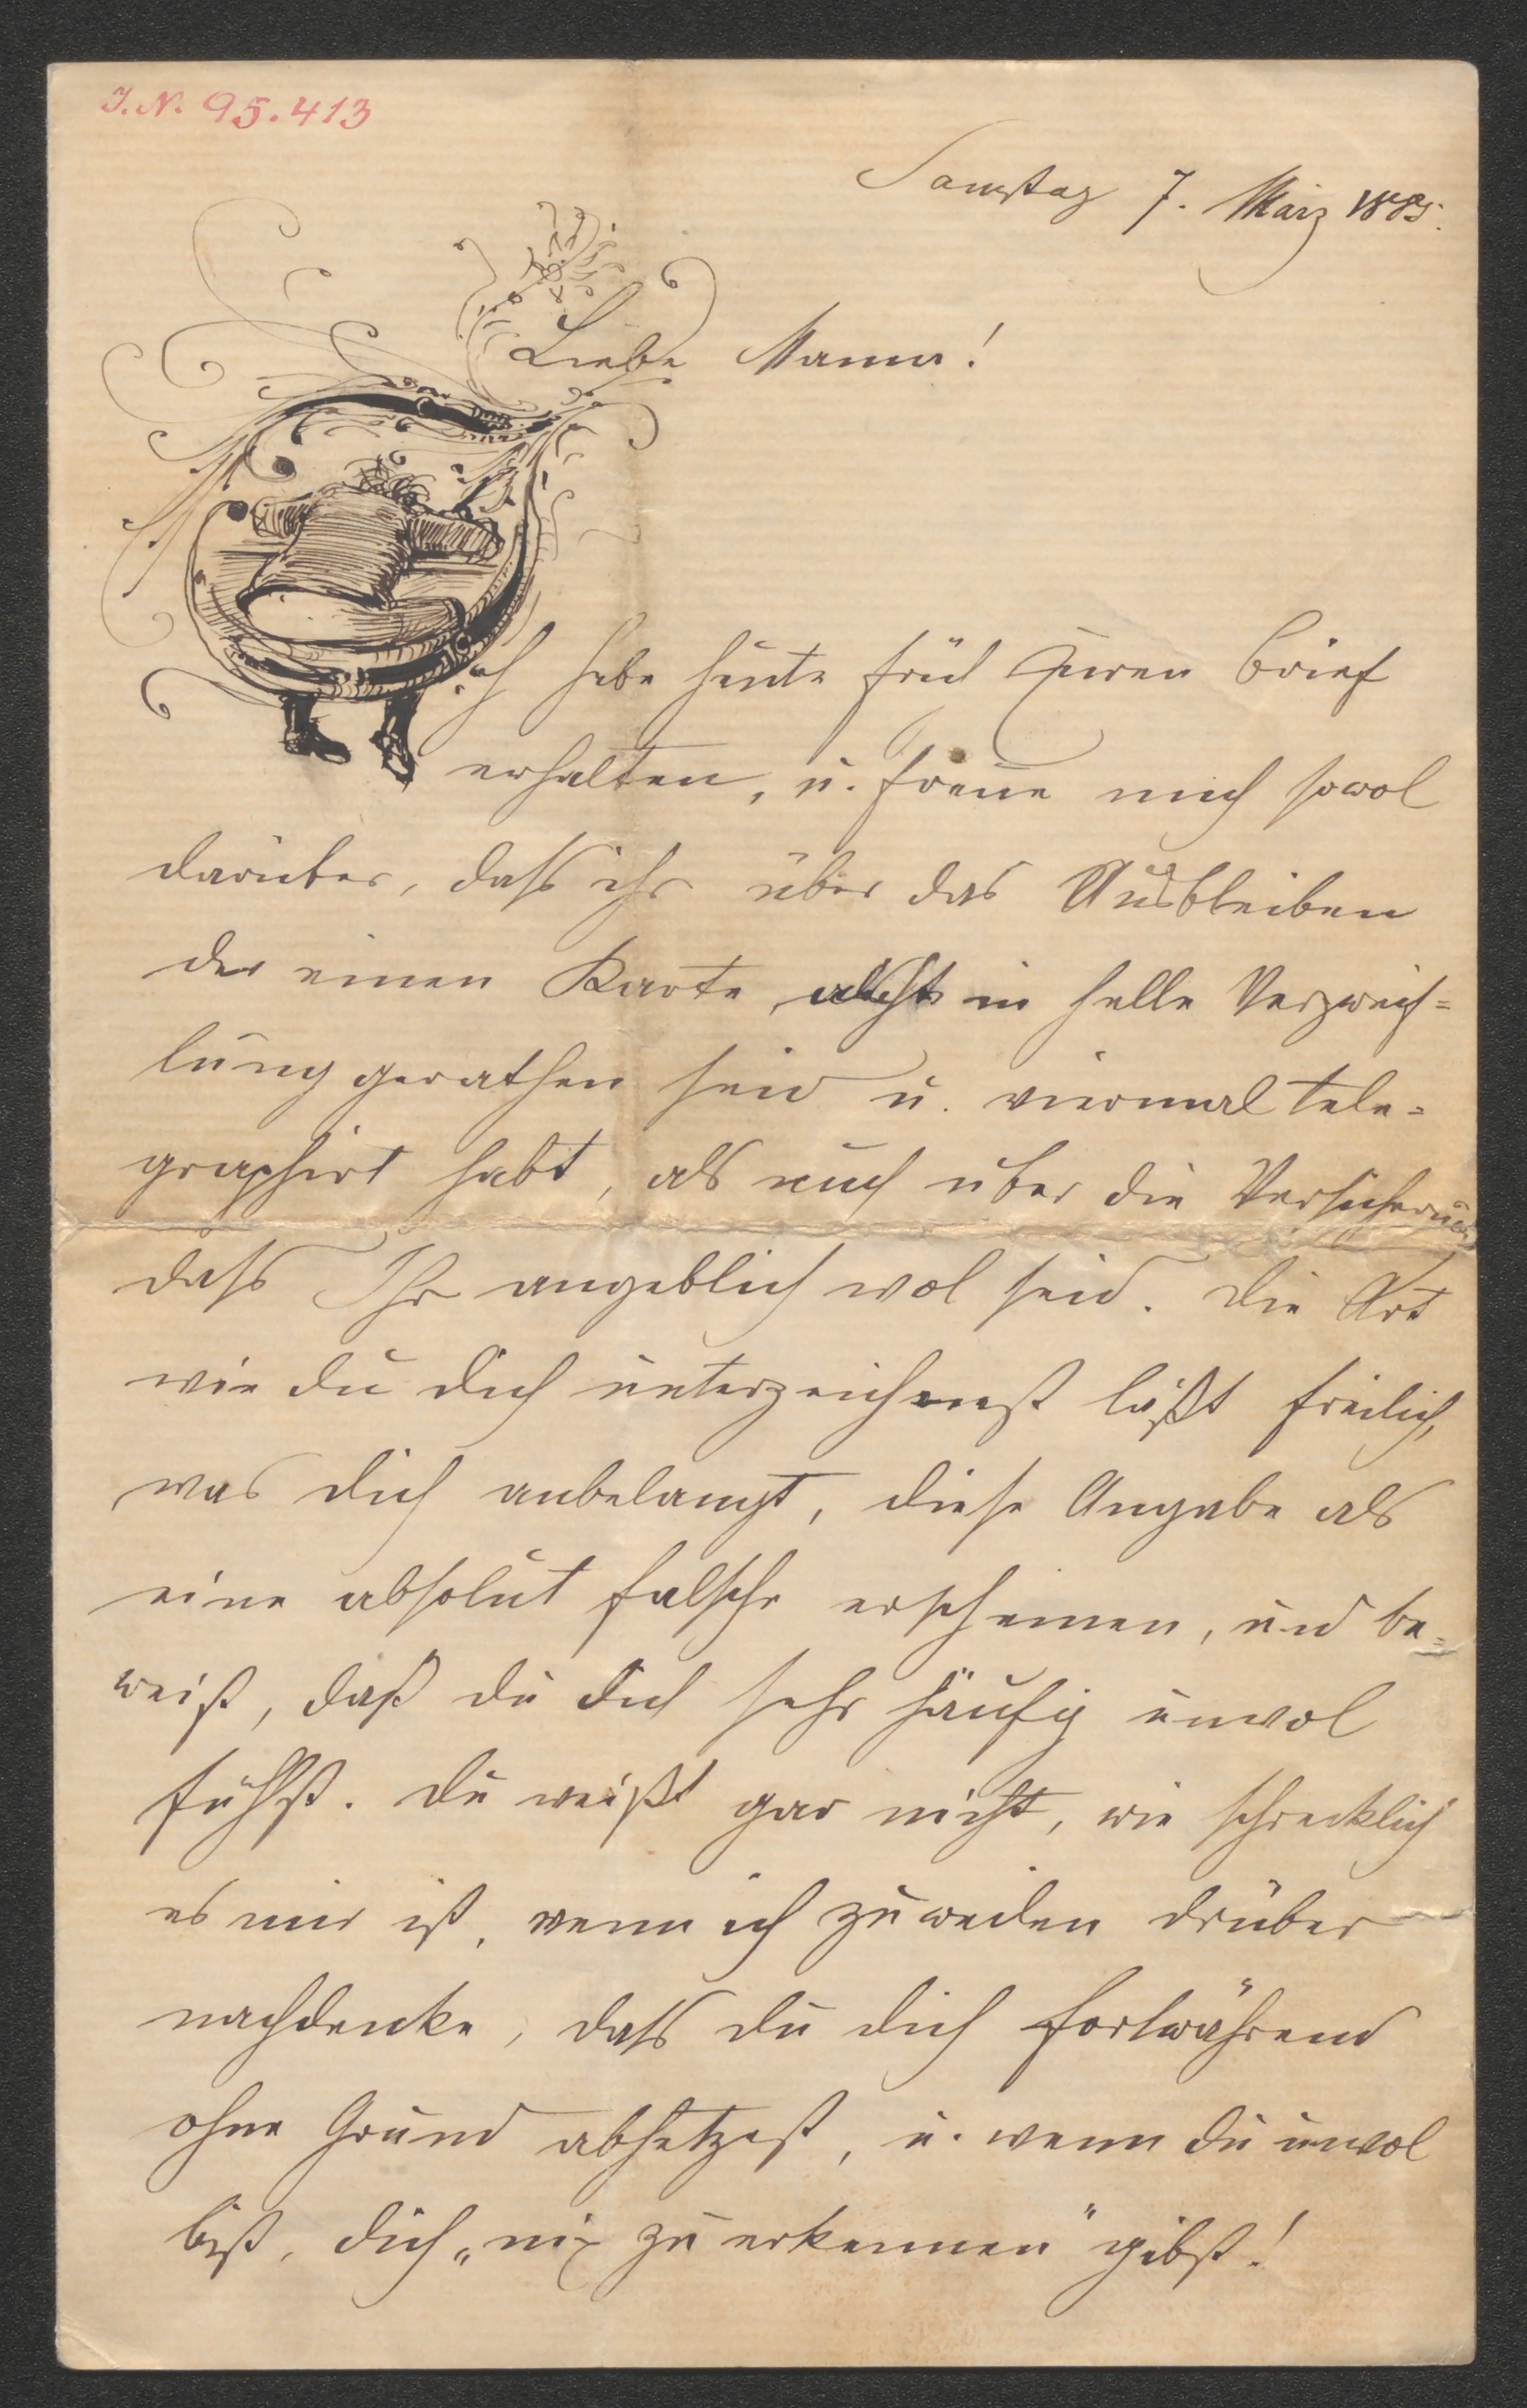 J.N. 95.413
Samstag 7. März 1885.
Liebe Mama!
Ich habe heute früh Euren Brief
erhalten, u. freue mich sowol
darüber, dass ihr über das Ausbleiben
der einen Karte nicht in helle Verzweif=
lung gerathen seid u. viermal tele=
graphirt habt, als auch über die Versicherung
dass Ihr angeblich wol seid. Die Art
wie du dich unterzeichnest läßt freilich,
was dich anbelangt, diese Angabe als
eine absolut falsche erscheinen, und be=
weist, daß du dich sehr häufig unwol
fühlst. Du weißt gar nicht, wie schrecklich
es mir ist, wenn ich zuweilen drüber
nachdenke, dass du dich fortwährend
ohne Grund abhetzest, u. wenn du unwol
bist, dich „nix zu erkennen" gibst!